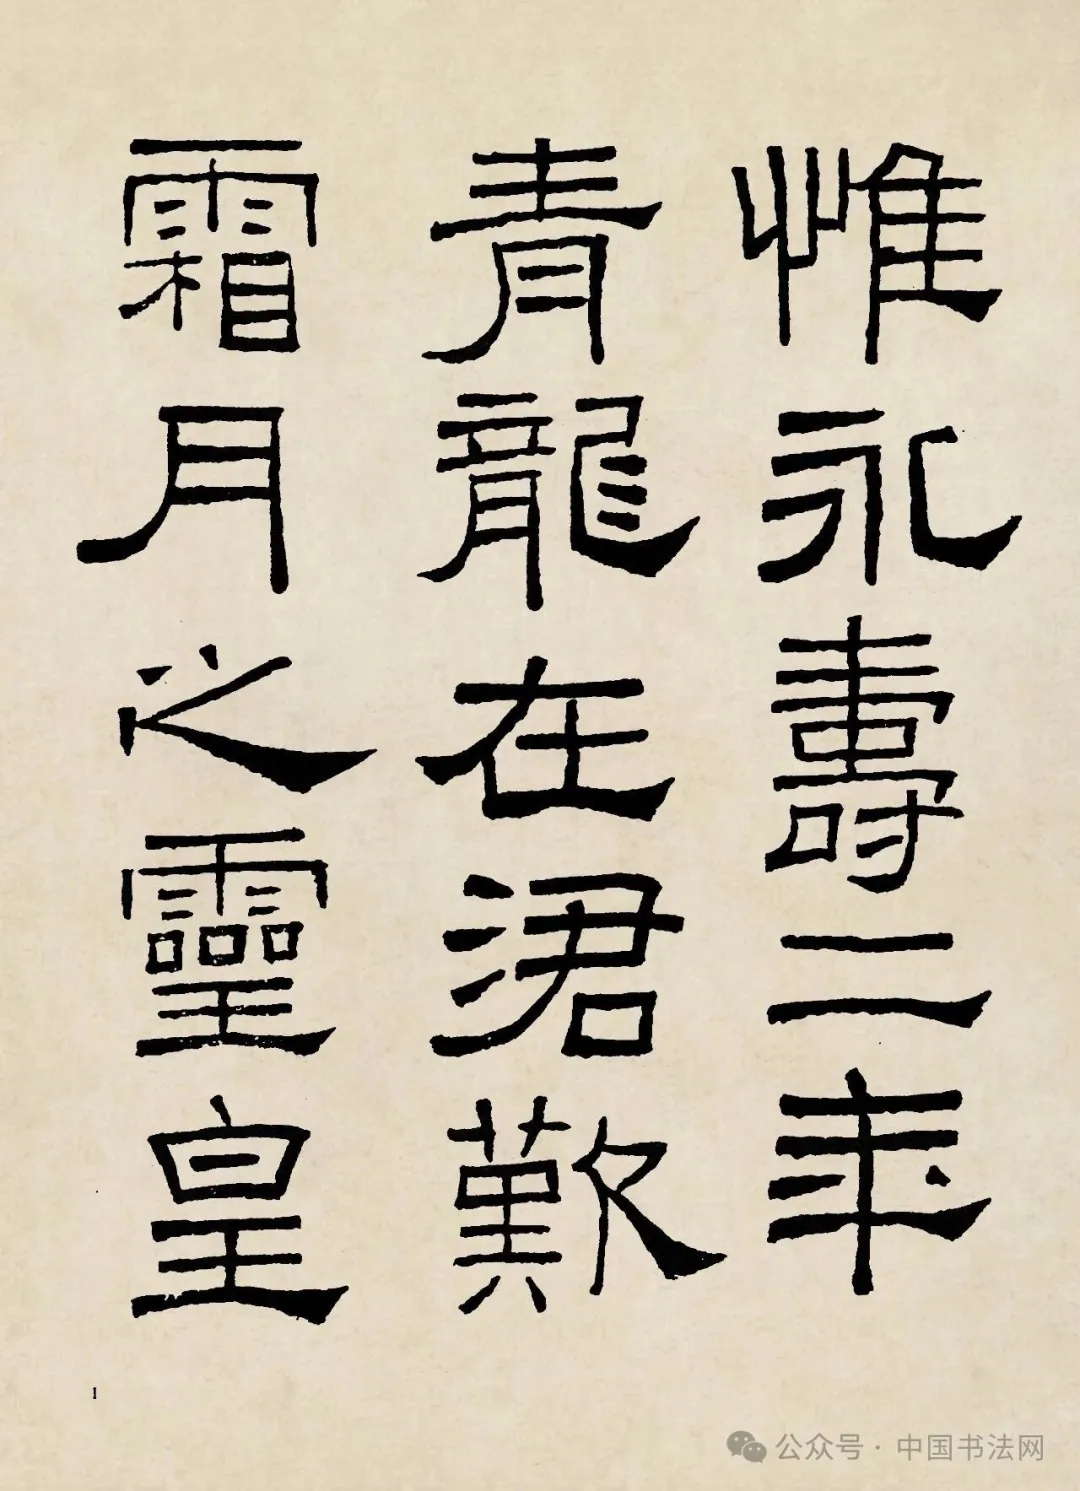 惟永壽二年
青龍在涒歎
霜月之靈皇
1
公众号·中国书法网